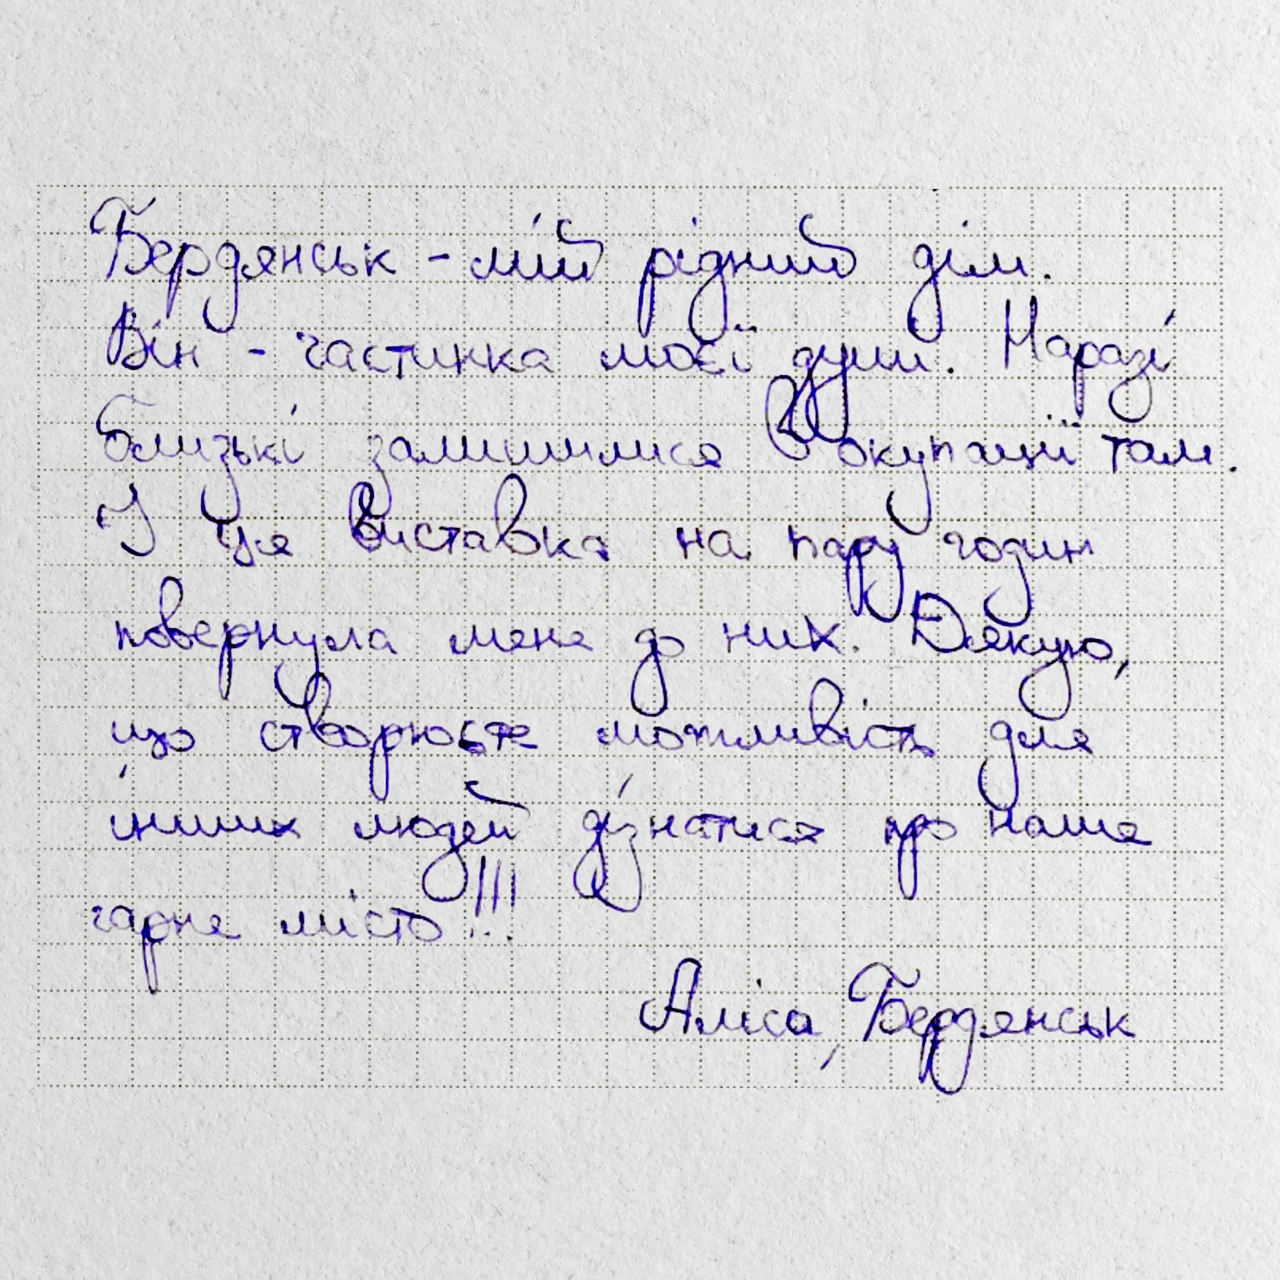 Бердянськ - мій рідний дім.
Він - частинка моєї душі. Наразі
близькі залишилися в окупації там.
І ця виставка на пару годин
повернула мене до них. Дякую,
що створюєте можливість для
інших людей дізнатися про наше
гарне місто!!!
Аліса, Бердянськ